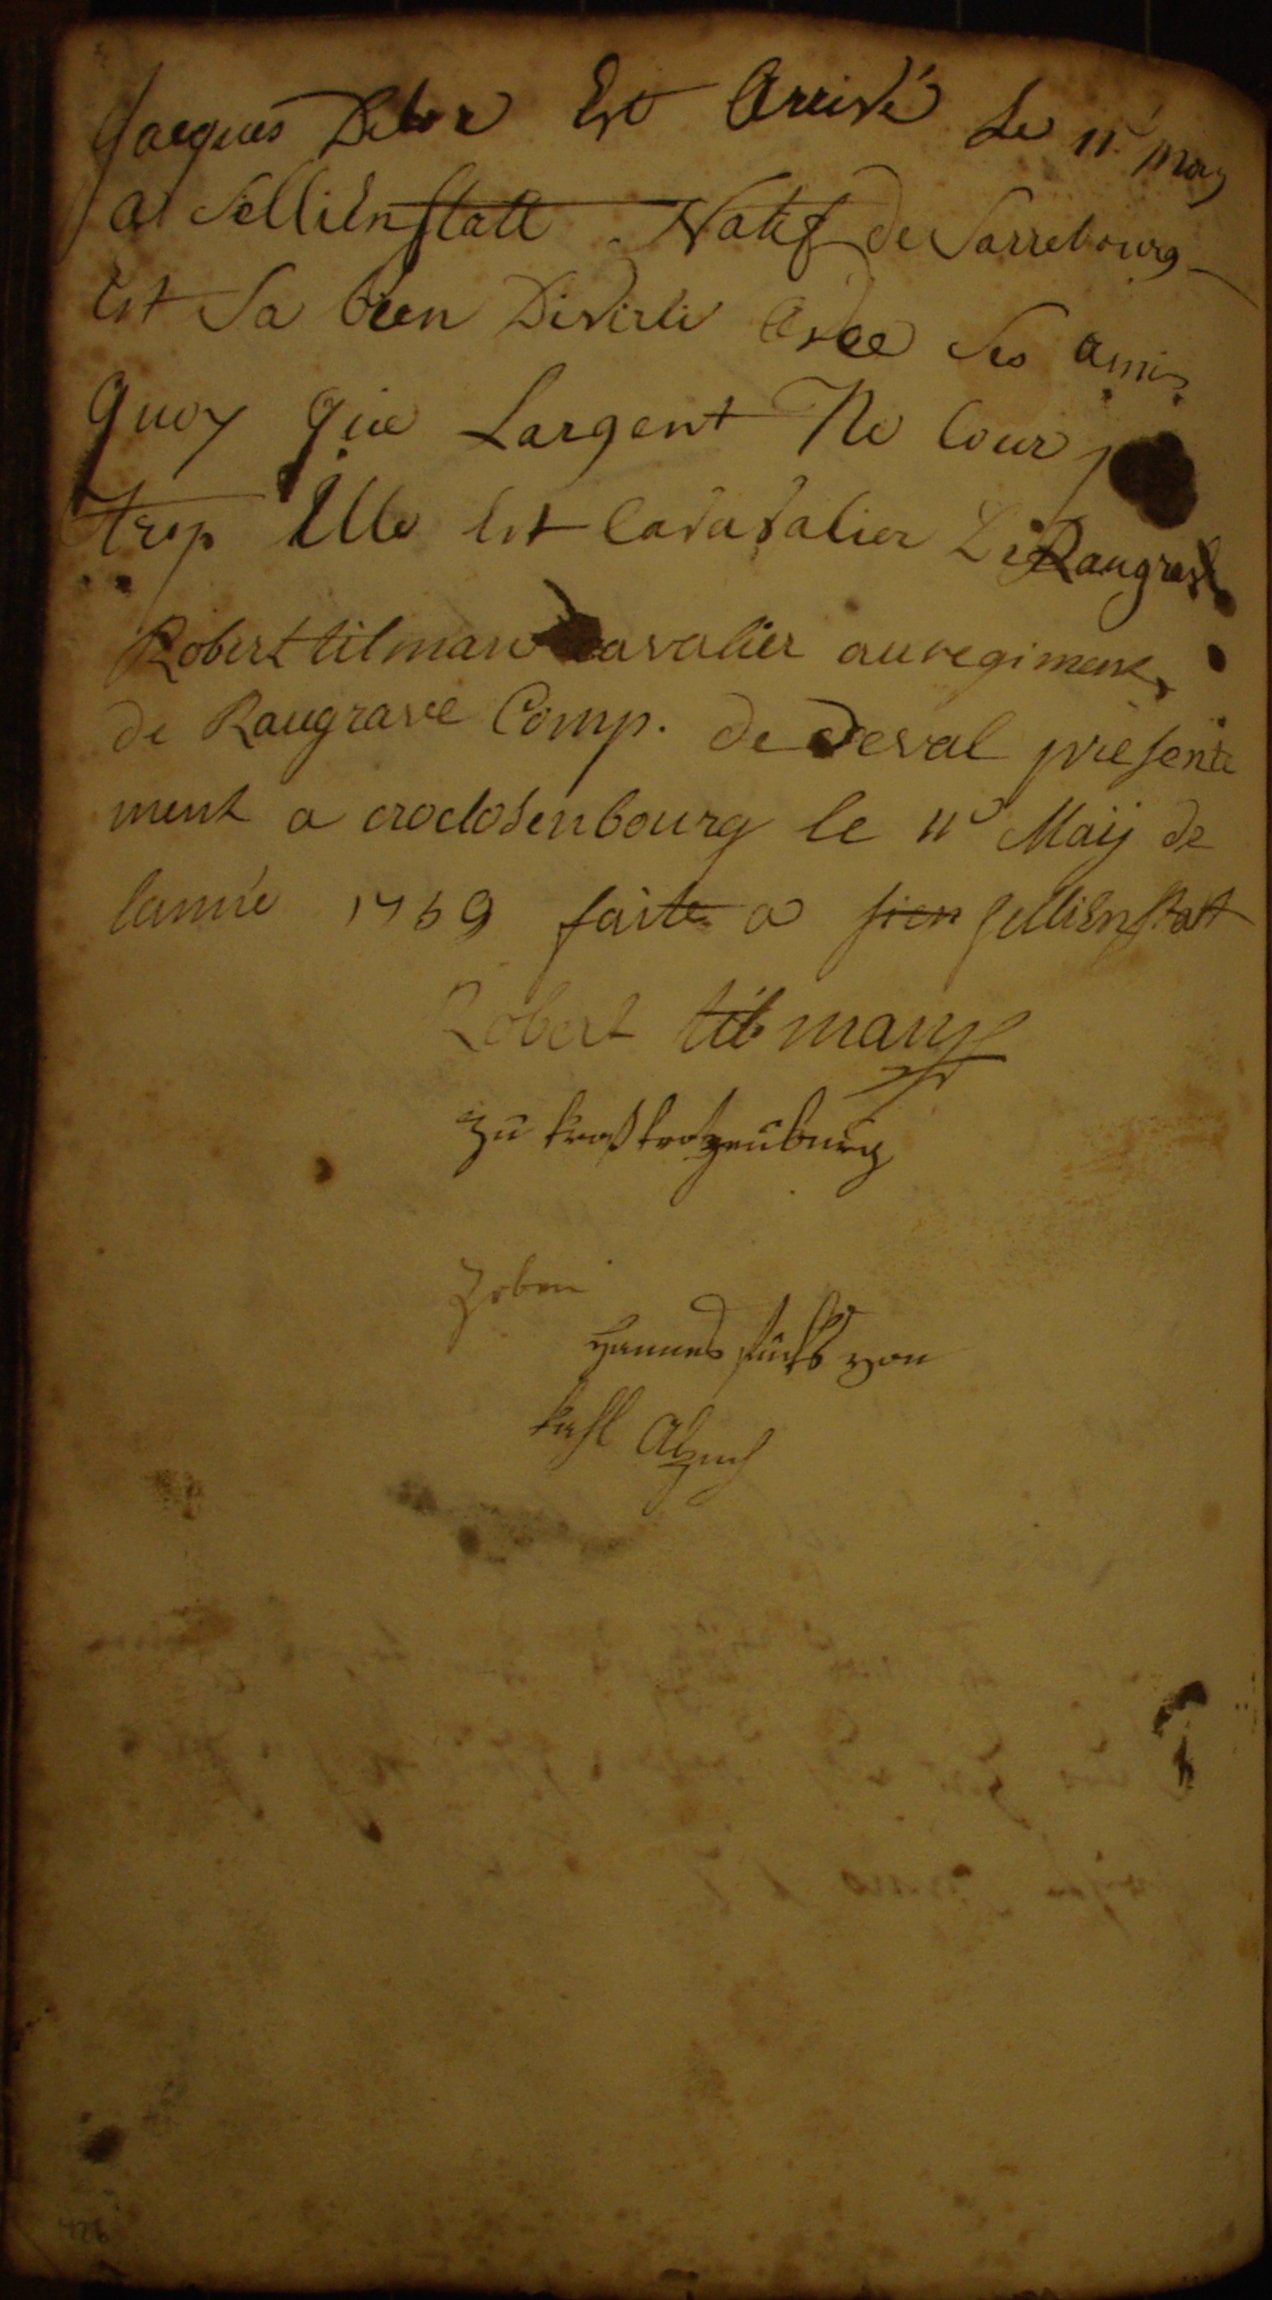 Jacques Deber Est Arrivé Le 11 may
a Sellienstatt Natif de Sarrebourg
Est Sa bien Diverti Avec Ses amis
quoy que Largent Ne Cour
trop Ille Est Cavavalier De Raugrave
Robert tilman cavalier au regiment
de Raugrave Comp. de deval presente
ment a crodosenbourg le 11 Maÿ de
lanneé 1759 faite a sien sellienstatt
Robert tilman
zu kroßkrotzenburg
Hannes fuchs von
kahl
426